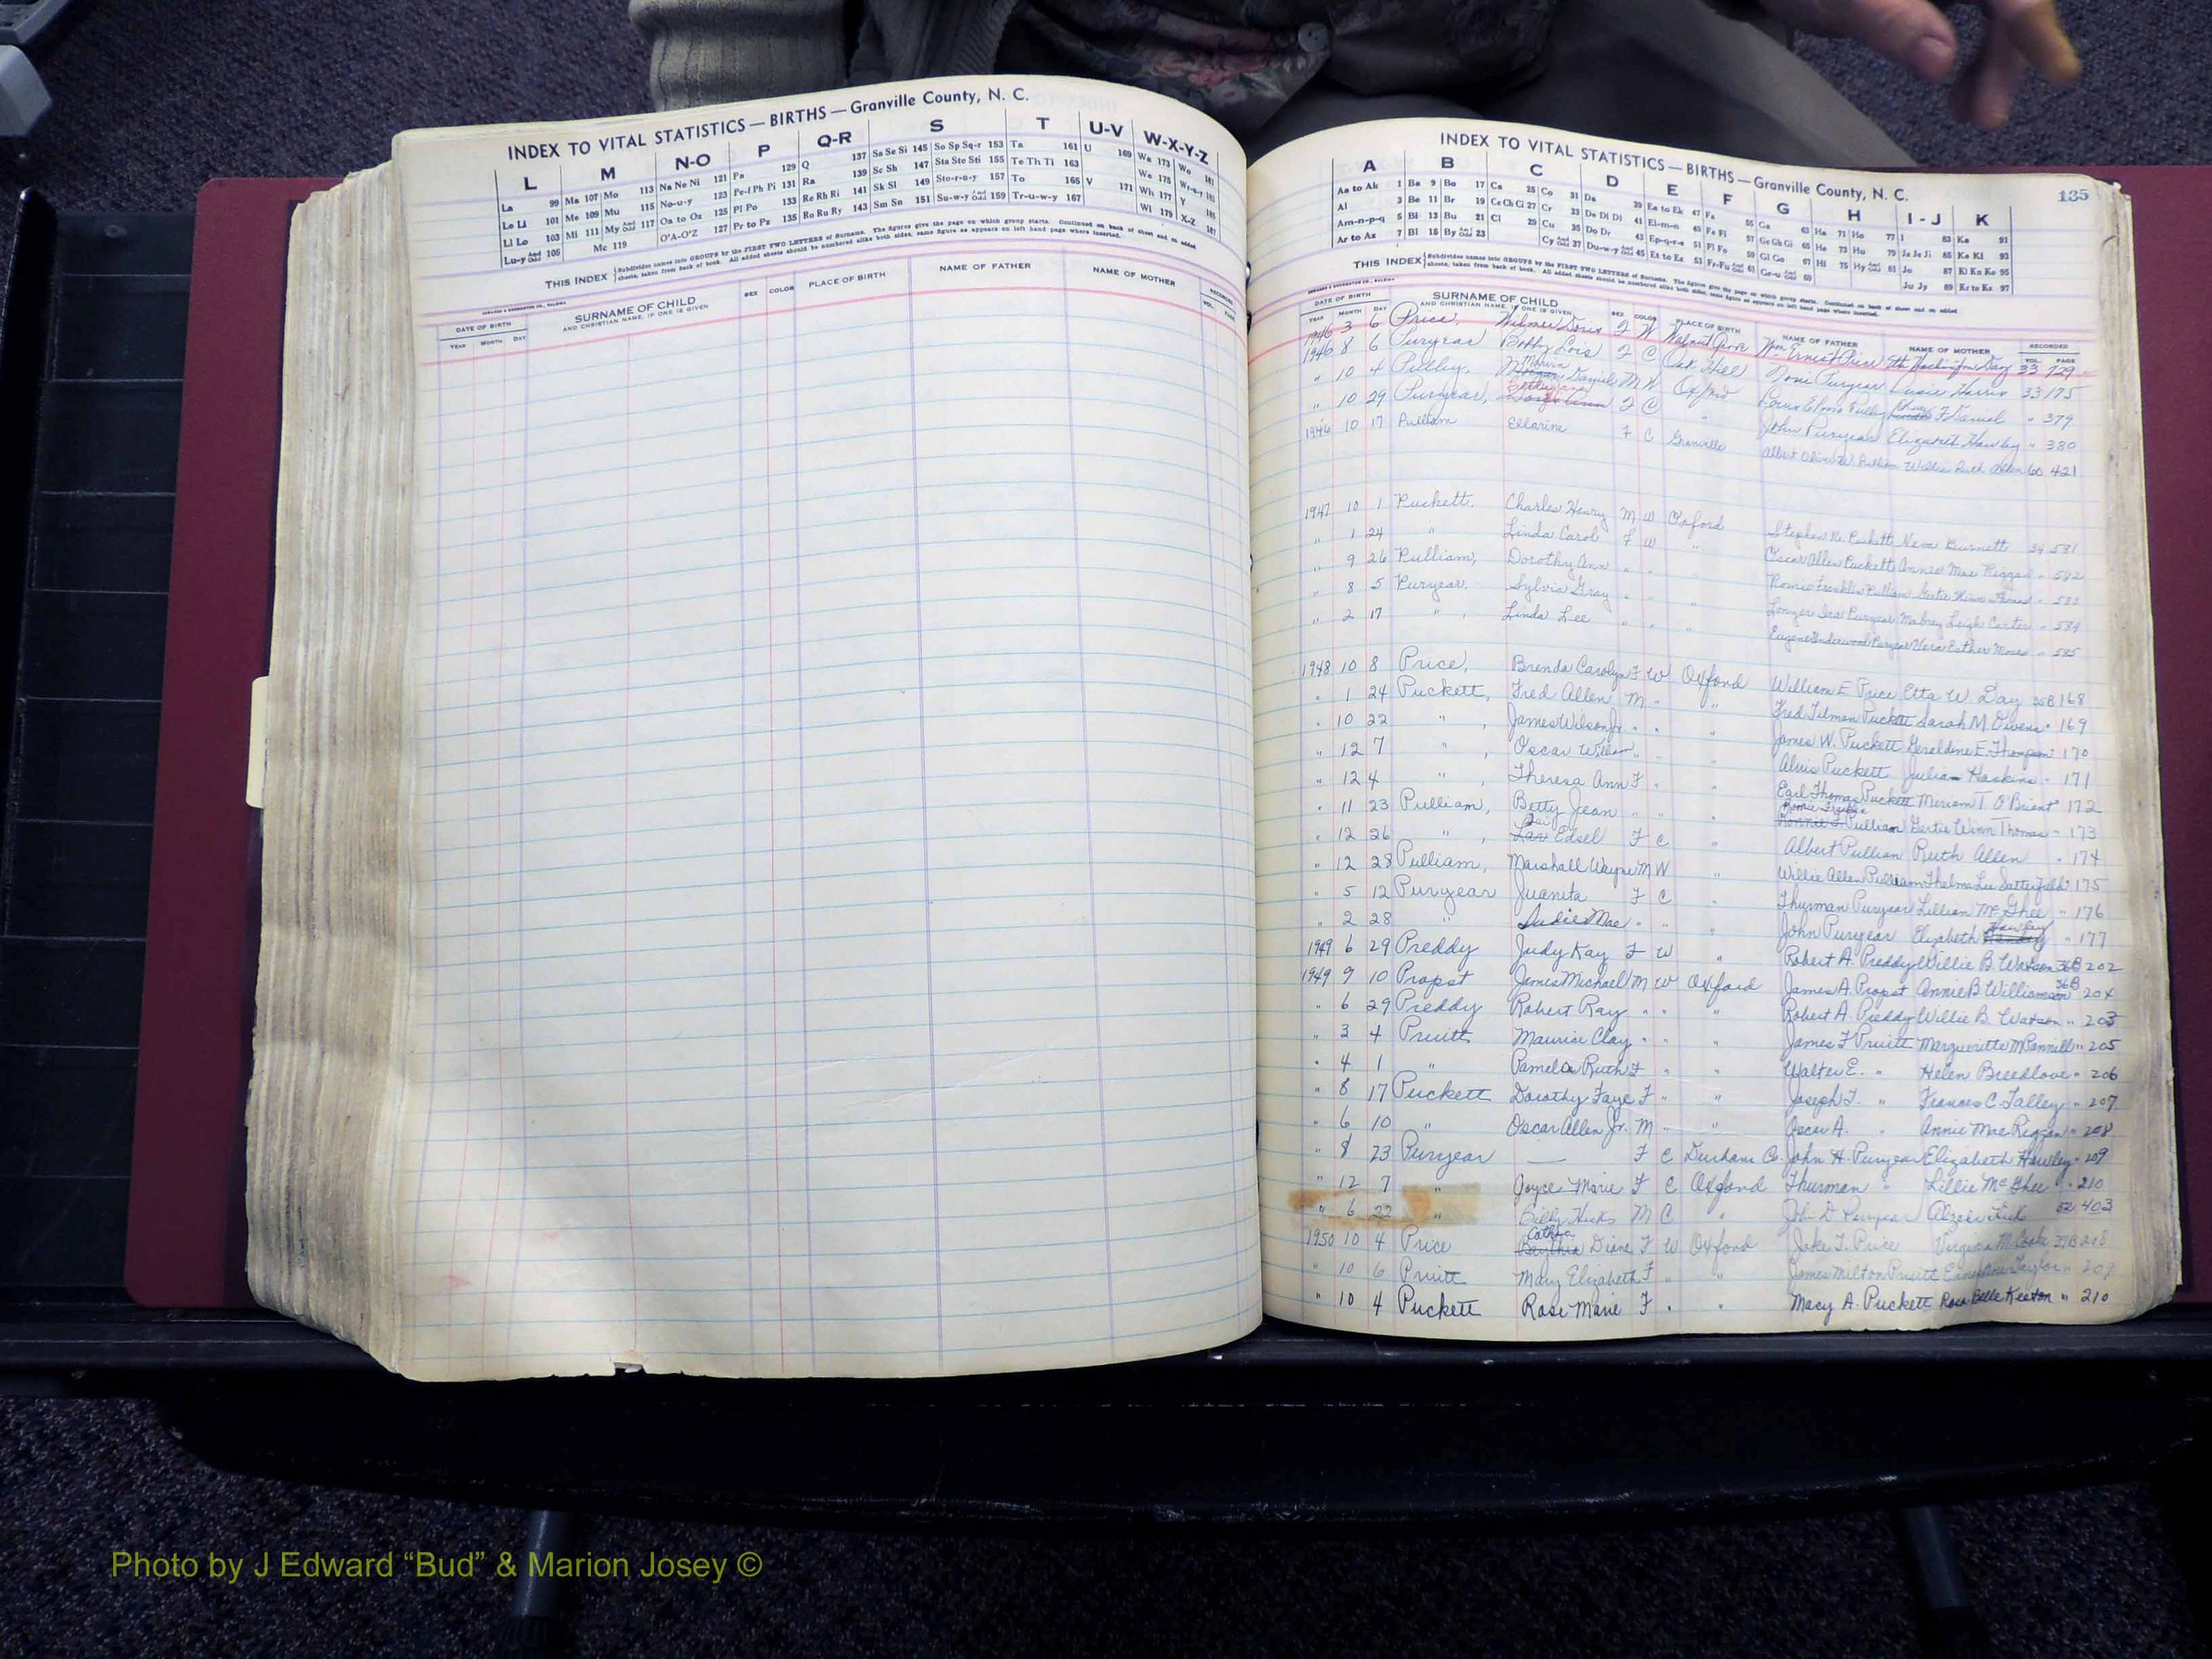 INDEX TO VITAL STATISTICS — BIRTHS — Granville County, N. C.
L M N-O P Q-R S T U-V W-X-Y-Z
La 99 Ma 107 Mo 113 Na Ne Ni 121 Pa 129 Q 137 Sa Se Si 145 So Sp Sq-r 153 Ta 161 U 169 Wa 173 Wo 181
Le Li 101 Me 109 Mu 115 No-u-y 123 Pe-f Ph Pi 131 Ra 139 Sc Sh 147 Sta Ste Sti 155 Te Th Ti 163 We 175
Ll Lo 103 Mi 111 My And Odd 117 Oa to Oz 125 Pl Po 133 Re Rh Ri 141 Sk Sl 149 Sto-r-u-y 157 To 165 V 171 Wh 177 Y 185
Lu-y And Odd 105 Mc 119 O'A-O'Z 127 Pr to Pz 135 Ro Ru Ry 143 Sm Sn 151 Su-w-y And Odd 159 Tr-u-w-y 167 Wi 179 X-Z 187
THIS INDEX Subdivides names into GROUPS by the FIRST TWO LETTERS of Surname. The figures give the page on which group starts. Continued on back of sheet and on added
sheets, taken from back of book. All added sheets should be numbered alike both sides, same figure as appears on left hand page where inserted.
DATE OF BIRTH SURNAME OF CHILD SEX COLOR PLACE OF BIRTH NAME OF FATHER NAME OF MOTHER RECORDED
YEAR MONTH DAY AND CHRISTIAN NAME, IF ONE IS GIVEN VOL. PAGE
INDEX TO VITAL STATISTICS — BIRTHS — Granville County, N. C.
135
A B C D E F G H I-J K
Aa to Ak 1 Ba 9 Bo 17 Ca 25 Co 31 Da 39 Ea to Ek 47 Fa 55 Ga 63 Ha 71 Ho 77 I 83 Ka 91
Al 3 Be 11 Br 19 Ce Ch Ci 27 Cr 33 De Di Dl 41 El-m-n 49 Fe Fi 57 Ge Gh Gi 65 He 73 Hu 79 Ja Je Ji 85 Ke Kl 93
Am-n-p-q 5 Bi 13 Bu 21 Cl 29 Cu 35 Do Dr 43 Ep-q-r-s 51 Fl Fo 59 Gl Go 67 Hi 75 Hy And Odd 81 Jo 87 Kl Kn Ko 95
Ar to Az 7 Bl 15 By And Odd 23 Cy And Odd 37 Du-w-y And Odd 45 Et to Ez 53 Fr-Fu And Odd 61 Gr-u And Odd 69 Ju Jy 89 Kr to Kz 97
THIS INDEX Subdivides names into GROUPS by the FIRST TWO LETTERS of Surname. The figures give the page on which group starts. Continued on back of sheet and on added
sheets, taken from back of book. All added sheets should be numbered alike both sides, same figure as appears on left hand page where inserted.
DATE OF BIRTH SURNAME OF CHILD SEX COLOR PLACE OF BIRTH NAME OF FATHER NAME OF MOTHER RECORDED
YEAR MONTH DAY AND CHRISTIAN NAME, IF ONE IS GIVEN VOL. PAGE
1946 3 6 Price, Wilma Doris F W Walnut Grove Wm. Ernest Price Etta Washington Day 33 729
1946 8 6 Puryear Bobby Lois F C Oak Hill Puryear Lucie Harris 33 175
" 10 4 Pulley, Marvin Daniel M W Oxford Elmo Pulley F Daniel " 379
" 10 29 Puryear, F C " John Puryear Elizabeth Hawley " 380
1946 10 17 Pulliam Ellarine F C Granville Albert Oliver Pulliam Willie Ruth Allen 60 421
1947 10 1 Puckett. Charles Henry M W Oxford Stephen R. Puckett Nena Burnett 34 581
" 1 24 " Linda Carol F W " Oscar Allen Puckett Annie Mae Riggan " 582
" 9 26 Pulliam, Dorothy Ann " " " Romie Franklin Pulliam Gertie Winn Thomas " 583
" 8 5 Puryear. Sylvia Gray " " " Ira Puryear Mabrey Leigh Carter " 584
" 2 17 " , Linda Lee " " " Eugene Underwood Puryear Vera Esther Moss " 585
1948 10 8 Price, Brenda Carolyn F W Oxford William E. Price Etta W. Day 35B 168
" 1 24 Puckett, Fred Allen M " " Fred Tilman Puckett Sarah M. Owens " 169
" 10 22 " , James Wilson Jr. " " " James W. Puckett Geraldine E. Thompson 170
" 12 7 " , Oscar William " " " Alvis Puckett Julian Haskins " 171
" 12 4 " , Theresa Ann F " " Earl Thomas Puckett Miriam T. O'Briant " 172
" 11 23 Pulliam, Betty Jean " " " Pulliam Gertie Winn Thomas " 173
" 12 26 " , Edsel F C " Albert Pulliam Ruth Allen " 174
" 12 28 Pulliam, Marshall Wayne M W " Willie Allen Pulliam Thelma Lee Satterfield 175
" 5 12 Puryear Juanita F C " Thurman Puryear Lillian McGhee " 176
" 2 28 " Sudie Mae " " " John Puryear Elizabeth Hawley " 177
1949 6 29 Preddy Judy Kay F W " Robert A. Preddy Willie B. Watson 36B 202
1949 9 10 Propst James Michael M W Oxford James A. Propst Annie B. Williamson 36B 204
" 6 29 Preddy Robert Ray " " " Robert A. Preddy Willie B. Watson " 203
" 3 4 Pruitt Maurice Clay " " " James F Pruitt Margueritte M Pannill " 205
" 4 1 " Pamela Ruth F " " Walter E. " Helen Breedlove " 206
" 8 17 Puckett Dorothy Faye F " " Joseph T. " Frances C. Talley " 207
" 6 10 " Oscar Allen Jr. M " " Oscar A. " Annie Mae Riggan " 208
" 8 23 Puryear — F C Durham Co. John H. Puryear Elizabeth Hawley " 209
" 12 7 " Joyce Marie F C Oxford Thurman " Lillie McGhee " 210
" 6 22 " Billy Hicks M C " John D Puryear Hicks 52 403
1950 10 4 Price Diane F W Oxford Jake T. Price Virginia M. Cooke 208
" 10 6 Pruitt Mary Elizabeth F " " James Milton Pruitt Ernestine Taylor " 209
" 10 4 Puckett Rose Marie F " " Macy A. Puckett Rosa Belle Keaton " 210
Photo by J Edward “Bud” & Marion Josey ©